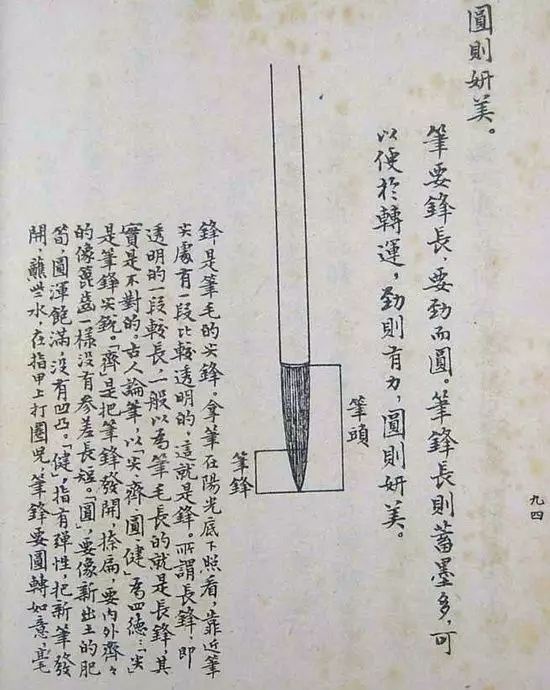 圓則妍美。
筆要鋒長、要勁而圓。筆鋒長則蓄墨多，可
以便於轉運，勁則有力，圓則妍美。
九四
筆頭
筆鋒
鋒是筆毛的尖鋒。拿筆在陽光底下照看，靠近筆
尖處有一段比較透明的，這就是鋒。所謂長鋒，即
透明的一段較長，一般以為筆毛長的就是長鋒，其
實是不對的。古人論筆，以「尖、齊、圓、健」為四德：「尖」
是筆鋒尖銳。「齊」是把筆鋒發開，捺扁，要內外齊々
的像篦齒一樣沒有參差長短。「圓」，要像新出土的肥
筍，圓渾飽滿，沒有凹凸。「健」，指有彈性，把新筆發
開，蘸些水，在指甲上打圈兒，筆鋒要圓轉如意，毫